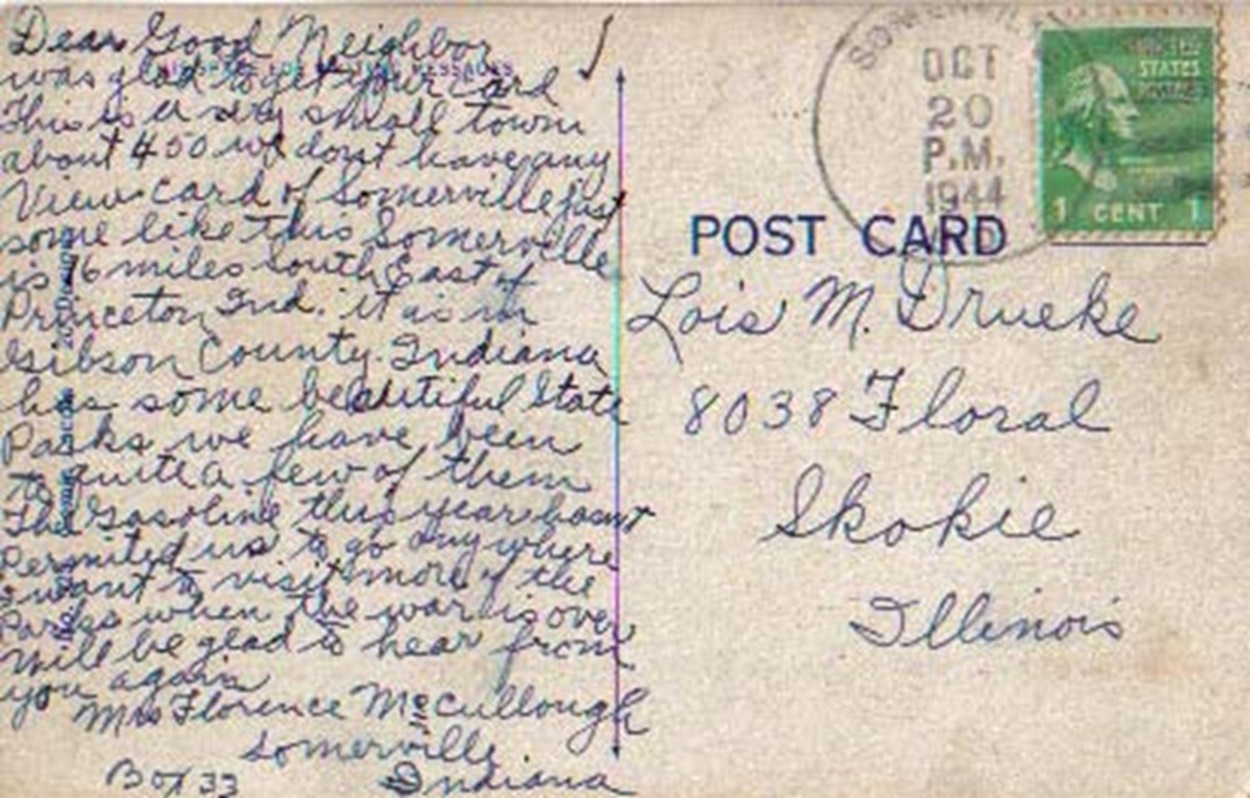 Dear Good Neighbor
was glad to get your card
This is a very small town
about 450 we dont have any
View card of Somerville just
some like this Somerville
is 16 miles South East of
Princeton Ind. it is in
Gibson County. Indiana
has some beautiful State
Parks we have been
to quite a few of them
The Gasoline this year hasnt
Permited us to go anywhere
I want to visit more of the
Parks when the war is over
will be glad to hear from
you again
Mrs Florence McCullough
Somerville
Box 33 Indiana
SOMERVILLE
OCT
20
P.M.
1944
UNITED
STATES
POSTAGE
1 CENT 1
POST CARD
Lois M. Drueke
8038 Floral
Skokie
Illinois